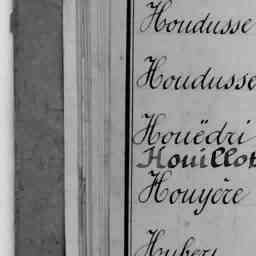 Houdusse
Houdusse
Houëdri
Houillot
Houyère